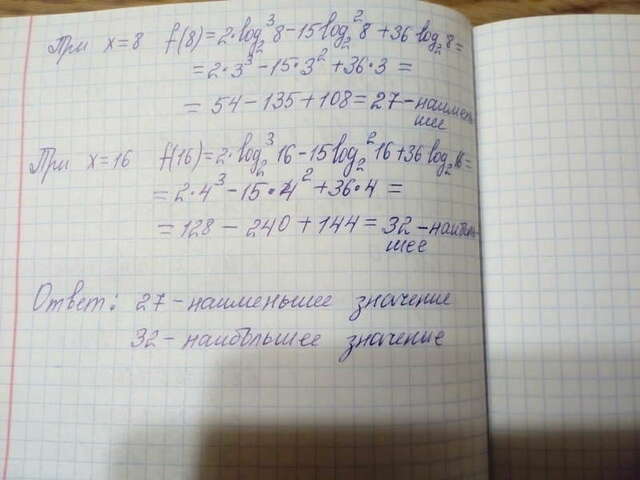 При x=8 f(8)=2·log₂³8-15log₂²8+36log₂8=
=2·3³-15·3²+36·3=
=54-135+108=27-наимень
шее
При x=16 f(16)=2·log₂³16-15log₂²16+36log₂16=
=2·4³-15·4²+36·4=
=128-240+144=32-наиболь-
шее
Ответ: 27-наименьшее значение
32-наибольшее значение